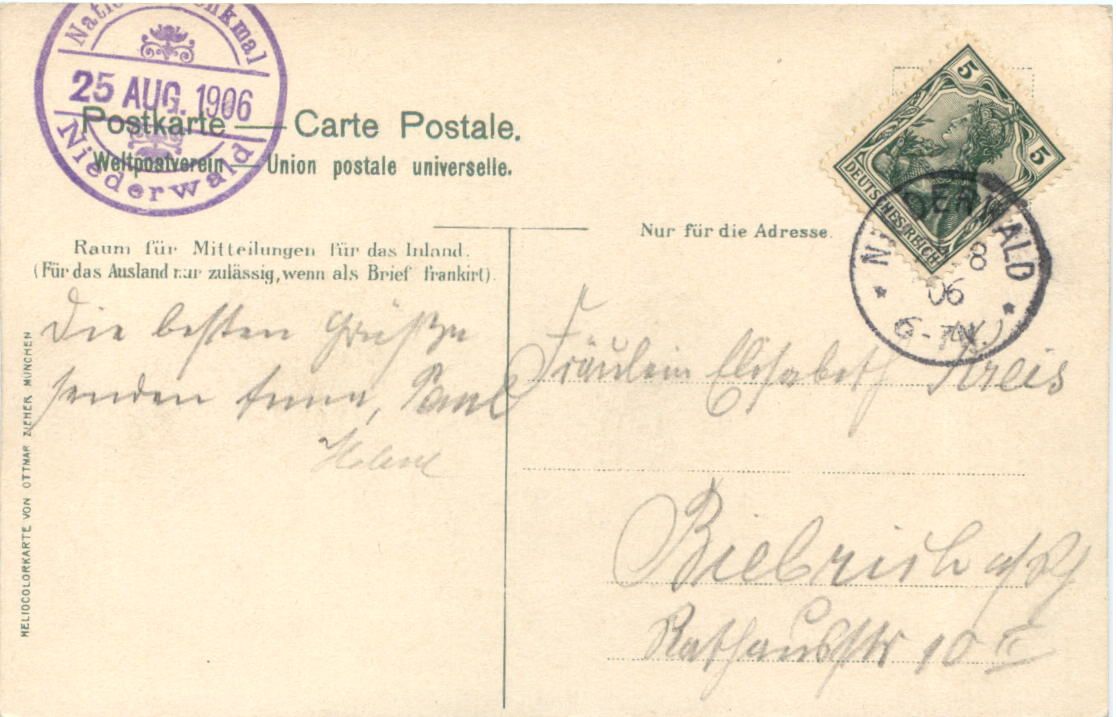 National-Denkmal
25 AUG. 1906
Niederwald
Postkarte — Carte Postale.
Weltpostverein — Union postale universelle.
5
5
DEUTSCHES REICH
NIEDERWALD
8
06
6-7N.
Raum für Mitteilungen für das Inland.
(Für das Ausland nur zulässig, wenn als Brief frankirt).
Nur für die Adresse.
Die besten Grüße
senden Anna, Paul
Helene
Fräulein Elisabeth Kreis
Biebrich a/Rh
Rathausstr 10 I
HELIOCOLORKARTE VON OTTMAR ZIEHER MÜNCHEN